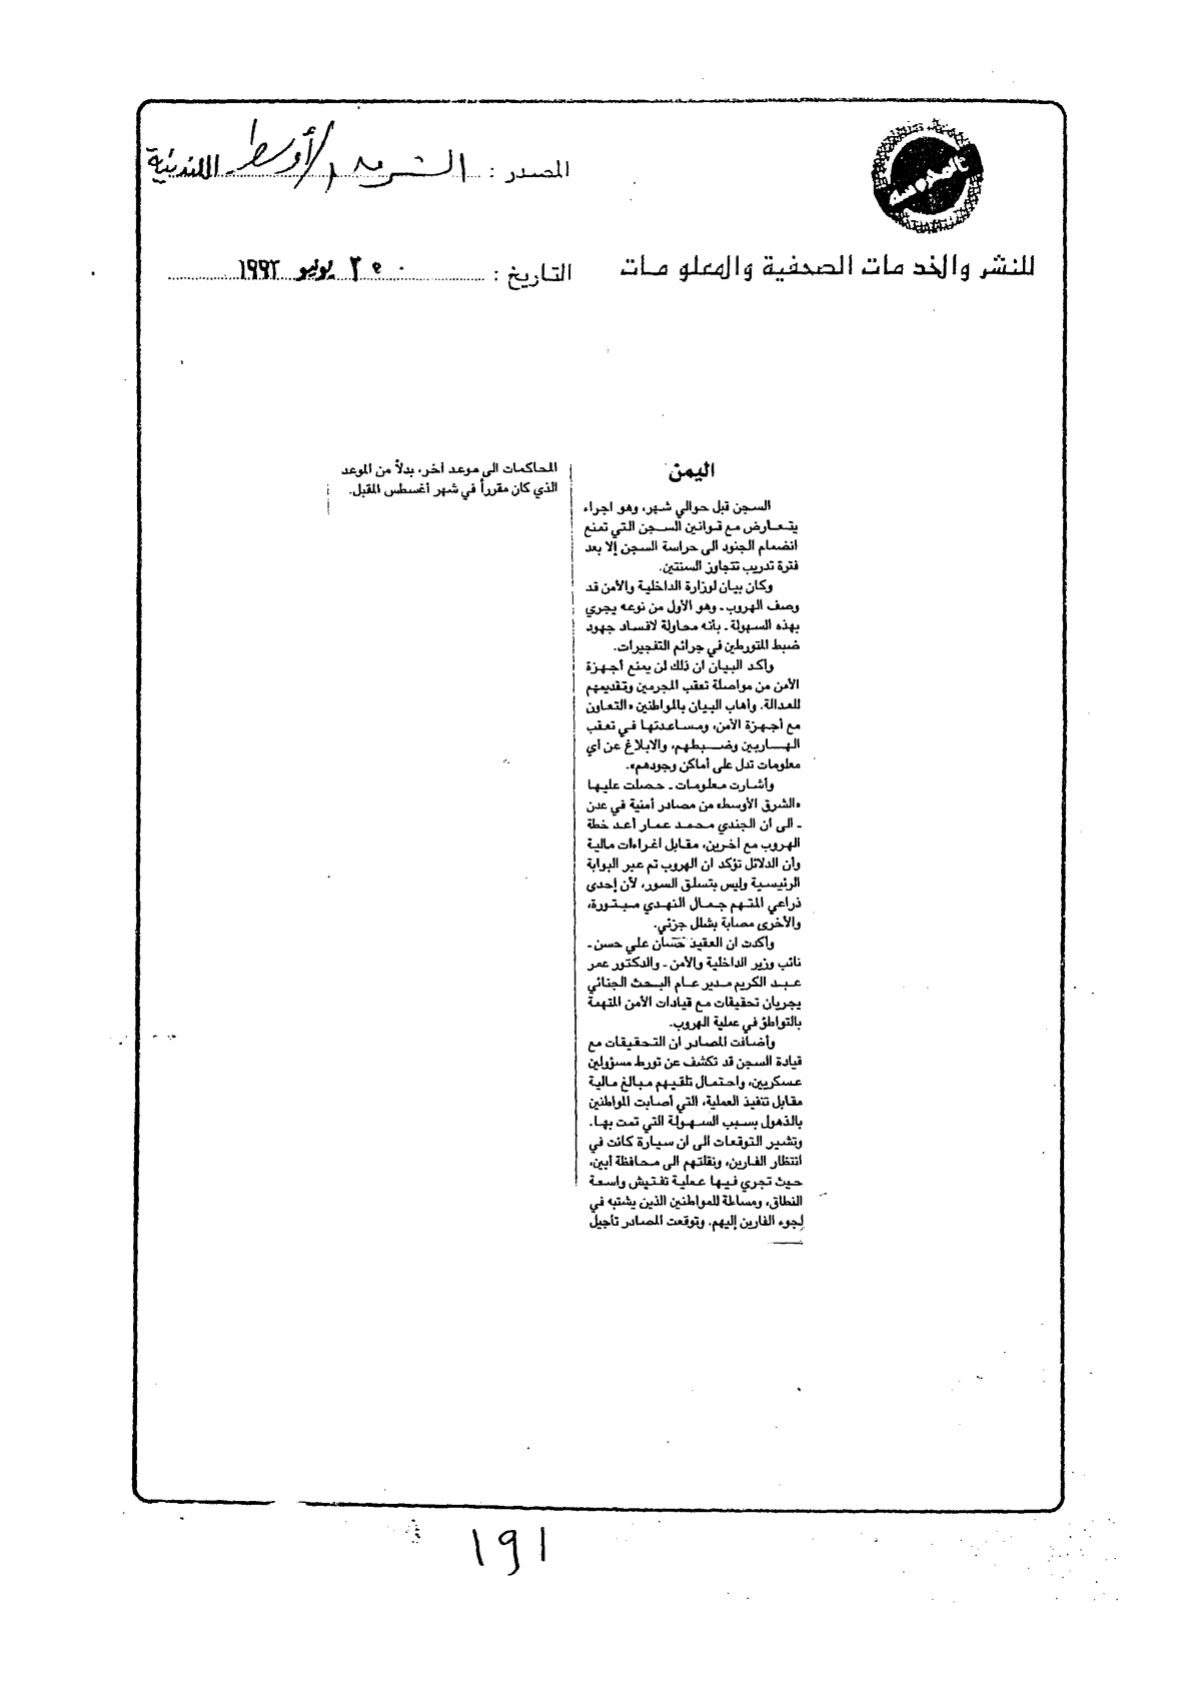 المصدر : الشرق الأوسط اللندنية
للنشر والخدمات الصحفية والمعلومات
التاريخ : ٢٥ يونيو ١٩٩٣
اليمن
السجن قبل حوالي شهر، وهو اجراء
يتعارض مع قوانين السجن التي تمنع
انضمام الجنود الى حراسة السجن إلا بعد
فترة تدريب تتجاوز السنتين.
وكان بيان لوزارة الداخلية والأمن قد
وصف الهروب ـ وهو الأول من نوعه يجري
بهذه السهولة ـ بأنه محاولة لافساد جهود
ضبط المتورطين في جرائم التفجيرات.
وأكد البيان ان ذلك لن يمنع أجهزة
الأمن من مواصلة تعقب المجرمين وتقديمهم
للعدالة. وأهاب البيان بالمواطنين «التعاون
مع أجهزة الأمن، ومساعدتها في تعقب
الهاربين وضبطهم، والابلاغ عن أي
معلومات تدل على أماكن وجودهم».
وأشارت معلومات ـ حصلت عليها
«الشرق الأوسط» من مصادر أمنية في عدن
ـ الى ان الجندي محمد عمار أعد خطة
الهروب مع آخرين، مقابل اغراءات مالية
وأن الدلائل تؤكد ان الهروب تم عبر البوابة
الرئيسية وليس بتسلق السور، لأن إحدى
ذراعي المتهم جمال النهدي مبتورة،
والأخرى مصابة بشلل جزئي.
وأكدت ان العقيد علي حسن ـ
نائب وزير الداخلية والأمن ـ والدكتور عمر
عبد الكريم مدير عام البحث الجنائي
يجريان تحقيقات مع قيادات الأمن المتهمة
بالتواطؤ في عملية الهروب.
وأضافت المصادر ان التحقيقات مع
قيادة السجن قد تكشف عن تورط مسؤولين
عسكريين، واحتمال تلقيهم مبالغ مالية
مقابل تنفيذ العملية، التي أصابت المواطنين
بالذهول بسبب السهولة التي تمت بها.
وتشير التوقعات الى ان سيارة كانت في
انتظار الفارين، ونقلتهم الى محافظة أبين،
حيث تجري فيها عملية تفتيش واسعة
النطاق، ومساءلة للمواطنين الذين يشتبه في
لجوء الفارين إليهم. وتوقعت المصادر تأجيل
المحاكمات الى موعد آخر، بدلاً من الموعد
الذي كان مقرراً في شهر أغسطس المقبل.
١٩١